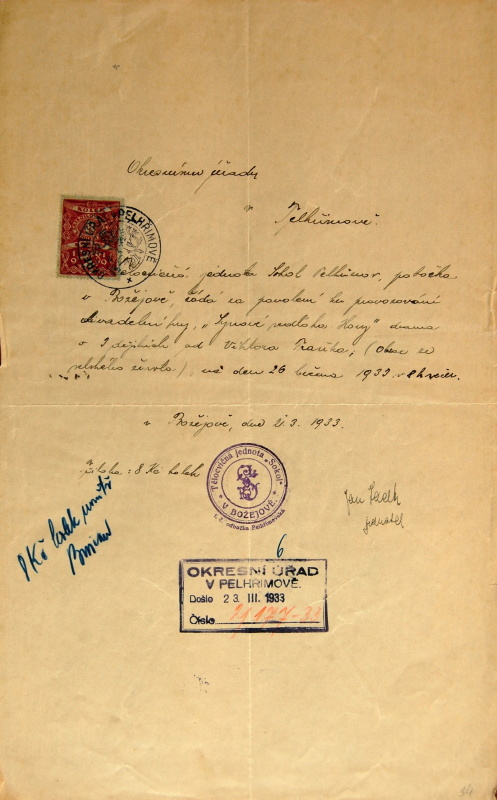 Okresnímu úřadu
v
Pelhřimově.
KOLEK
OKRESNÍ ÚŘAD PELHŘIMOVĚ
Tělocvičná jednota Sokol Pelhřimov, pobočka
v Božejově, žádá za povolení ku provozování
divadelní hry, " sedláka " drama
o 3 dějstvích od Viktora (Obraz ze
selského života), na den 26 března 1933 v 8 h večer.
v Božejově, dne 21.3. 1933.
Příloha: 8 Kč kolek
Tělocvičná jednota „Sokol“
V BOŽEJOVĚ.
t. č. odbočka Pelhřimovská
Jan
jednatel
8 Kč kolek uvnitř
6
OKRESNÍ ÚŘAD
V PELHŘIMOVĚ.
Došlo 23 III. 1933
Číslo
34